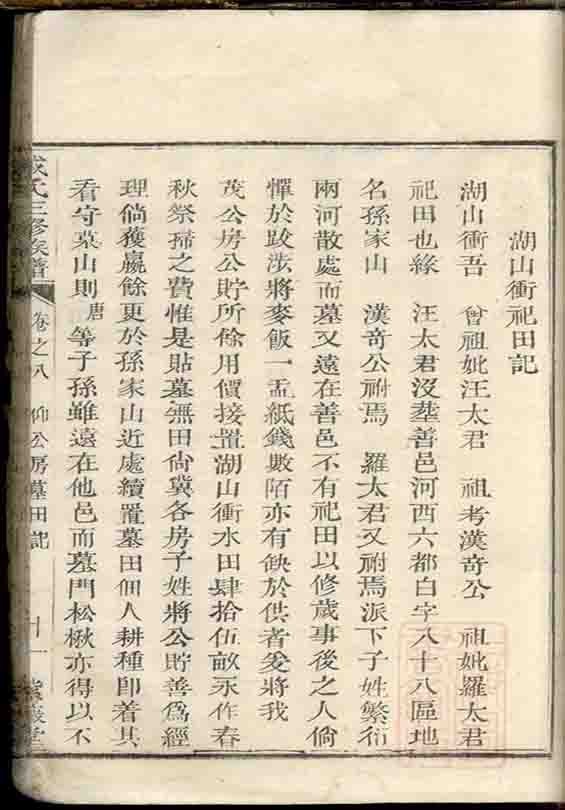 湖山衝祀田記
湖山衝吾 曾祖妣汪太君 祖考漢奇公 祖妣羅太君
祀田也緣 汪太君沒塟善邑河西六都白字八十八區地
名孫家山 漢奇公祔焉 羅太君又祔焉派下子姓繁衍
兩河散處而墓又遠在善邑不有祀田以修歲事後之人倘
憚於跋涉將麥飯一盂紙錢數陌亦有缺於供者爰將我
茂公房公貯所餘用價接置湖山衝水田肆拾伍畝永作春
秋祭掃之費惟是貼墓無田尙冀各房子姓將公貯善爲經
理倘獲贏餘更於孫家山近處續置墓田佃人耕種卽着其
看守墓山則唐等子孫雖遠在他邑而墓門松楸亦得以不
氏三修族譜 卷之八 仰公房墓田記 十一 堂